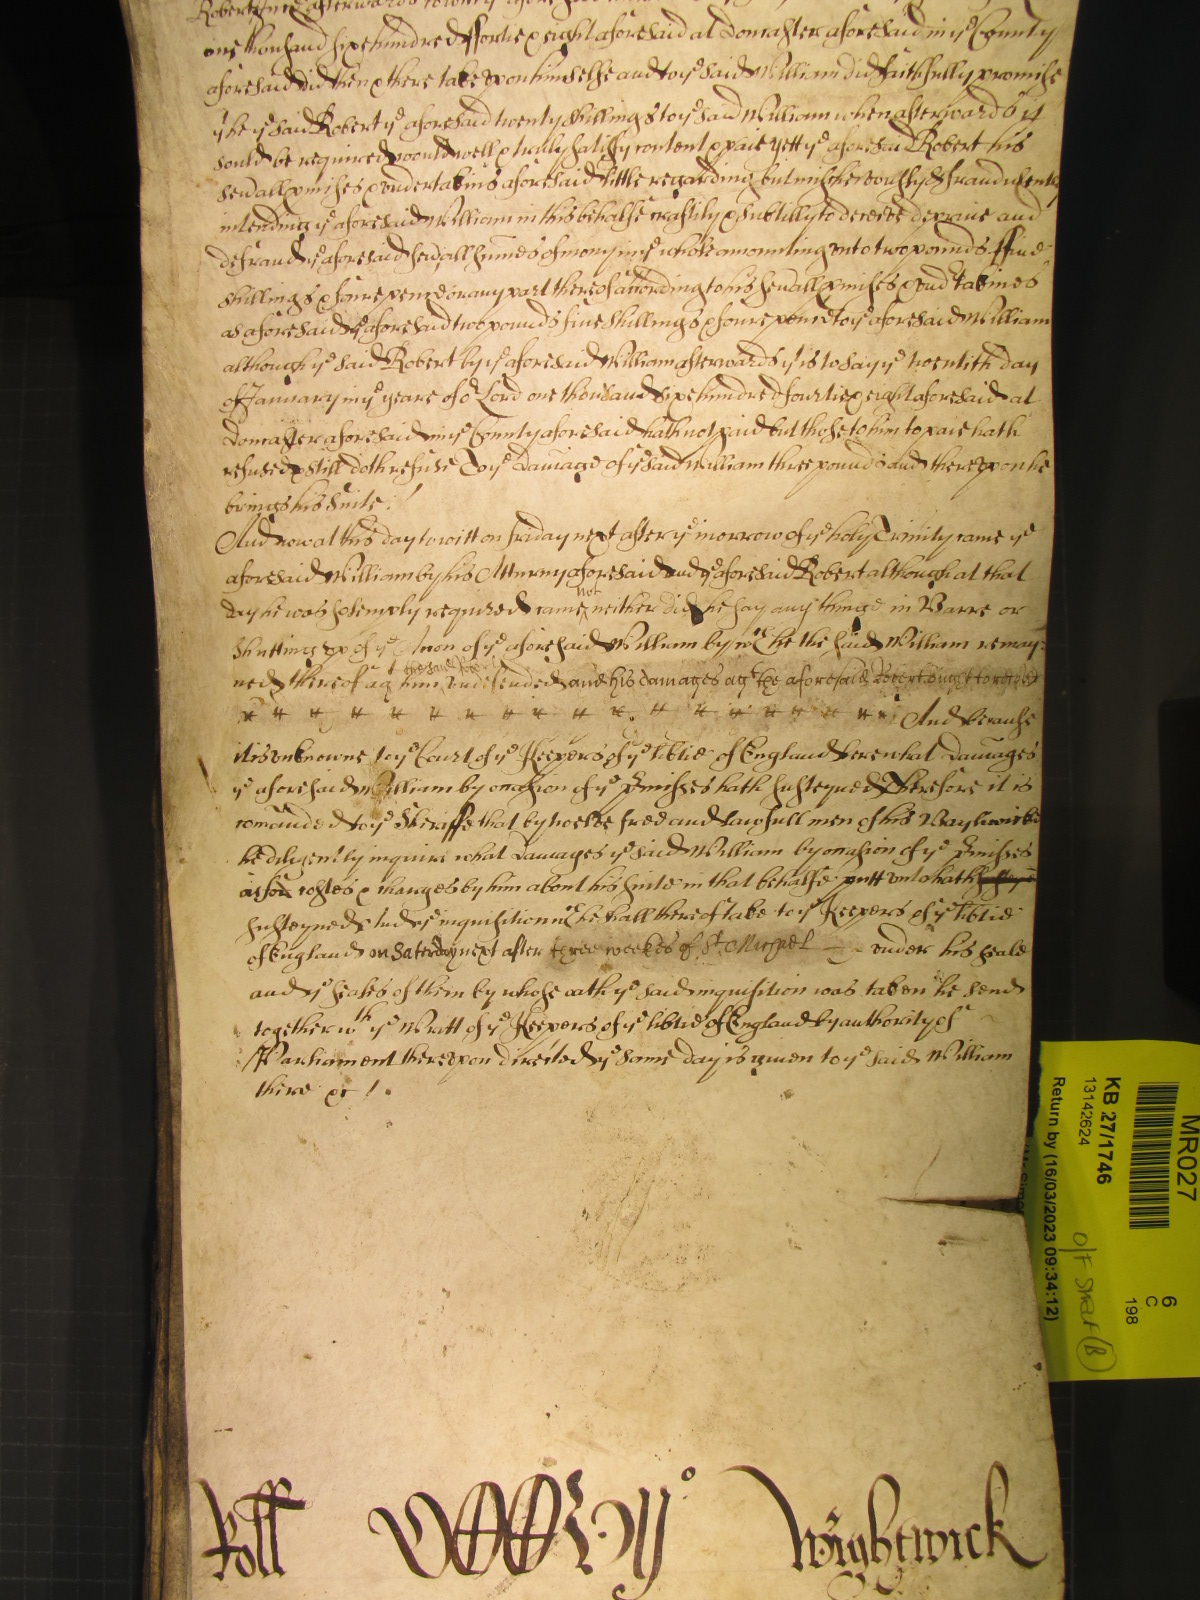 Robert and afterwards to witt ye aforesaid
one thousand sixe hundred ffortie & eight aforesaid at Doncaster aforesaid in ye County
aforesaid did then & there take upon himselfe and to ye said William did faithfully promise
yt he ye said Robert ye aforesaid twenty shillings to ye said William when afterwards yt
sould be required would well & truly satisfy content & paie yett ye aforesaid Robert his
sevall pmises & undertakins aforesaid little regarding but mischeevously & fraudulently
intending ye aforesaid William in this behalfe craftily & subtilly to deceive deprive and
defraud ye aforesaid sevall summes of mony in ye whole amounting unto two pounds ffive
shillings & foure pence or any part thereof according to his sevall pmises & undtakines
as aforesaid ye aforesaid two pounds five shillings & foure pence to ye aforesaid William
although ye said Robert by ye aforesaid William afterwards yt is to say ye twentith day
of January in ye yeare of or Lord one thousand sixe hundred fourtie & eight aforesaid at
Doncaster aforesaid in ye County aforesaid hath not paid but those to him to paie hath
refused & still doth refuse To ye damage of ye said William three pounds and thereupon he
brings his suite
And now at this day to witt on friday next after ye morrow of ye holy Trinity came ye
aforesaid William by his Atturny aforesaid and ye aforesaid Robert although at that
day he was solemply required came not neither did he say any thinge in Barre or
Shutting up of ye Accon of ye aforesaid William by wch he the said William remay-
ned thereof agt him the said Robert undefended and his damages agt the aforesaid Robert ought to recover
And because
it is unknowne to ye Court of ye Keepers of ye libtie of England here what damages
ye aforesaid William by occasion of ye pmisses hath susteyned Therefore it is
comanded to ye Sheriffe that by twelve free and lawfull men of his Baylywicke
he diligently inquire what damages ye said William by occasion of ye pmisses
as for costes & charges by him about his suite in that behalfe putt unto hath
susteyned And ye inquisition wch he shall thereof take to ye Keepers of ye libtie
of England on Saterday next after three weekes of St Michael under his seale
and ye seales of them by whose oath ye said inquisition was taken he send
together wth ye Writt of ye Keepers of ye libtie of England by authority of
Parliament thereupon directed ye same day is given to ye said William
there &c
Roll Wightwick
MR027
KB 27/1746
13142624
Return by (16/03/2023 09:34:12)
6
C
198